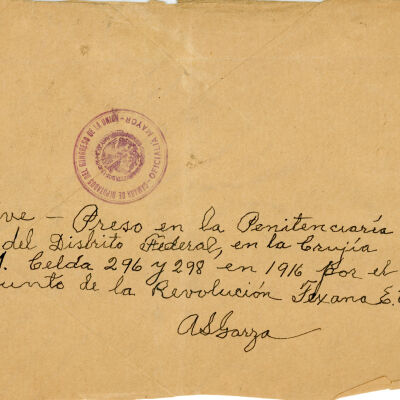 OFICIALIA MAYOR - CAMARA DE DIPUTADOS DEL CONGRESO DE LA UNION
ve - Preso en la Penitenciaría
del Distrito Federal, en la Crujía
Celda 296 y 298 en 1916 por el
unto de la Revolución Texana E.
ASGarza